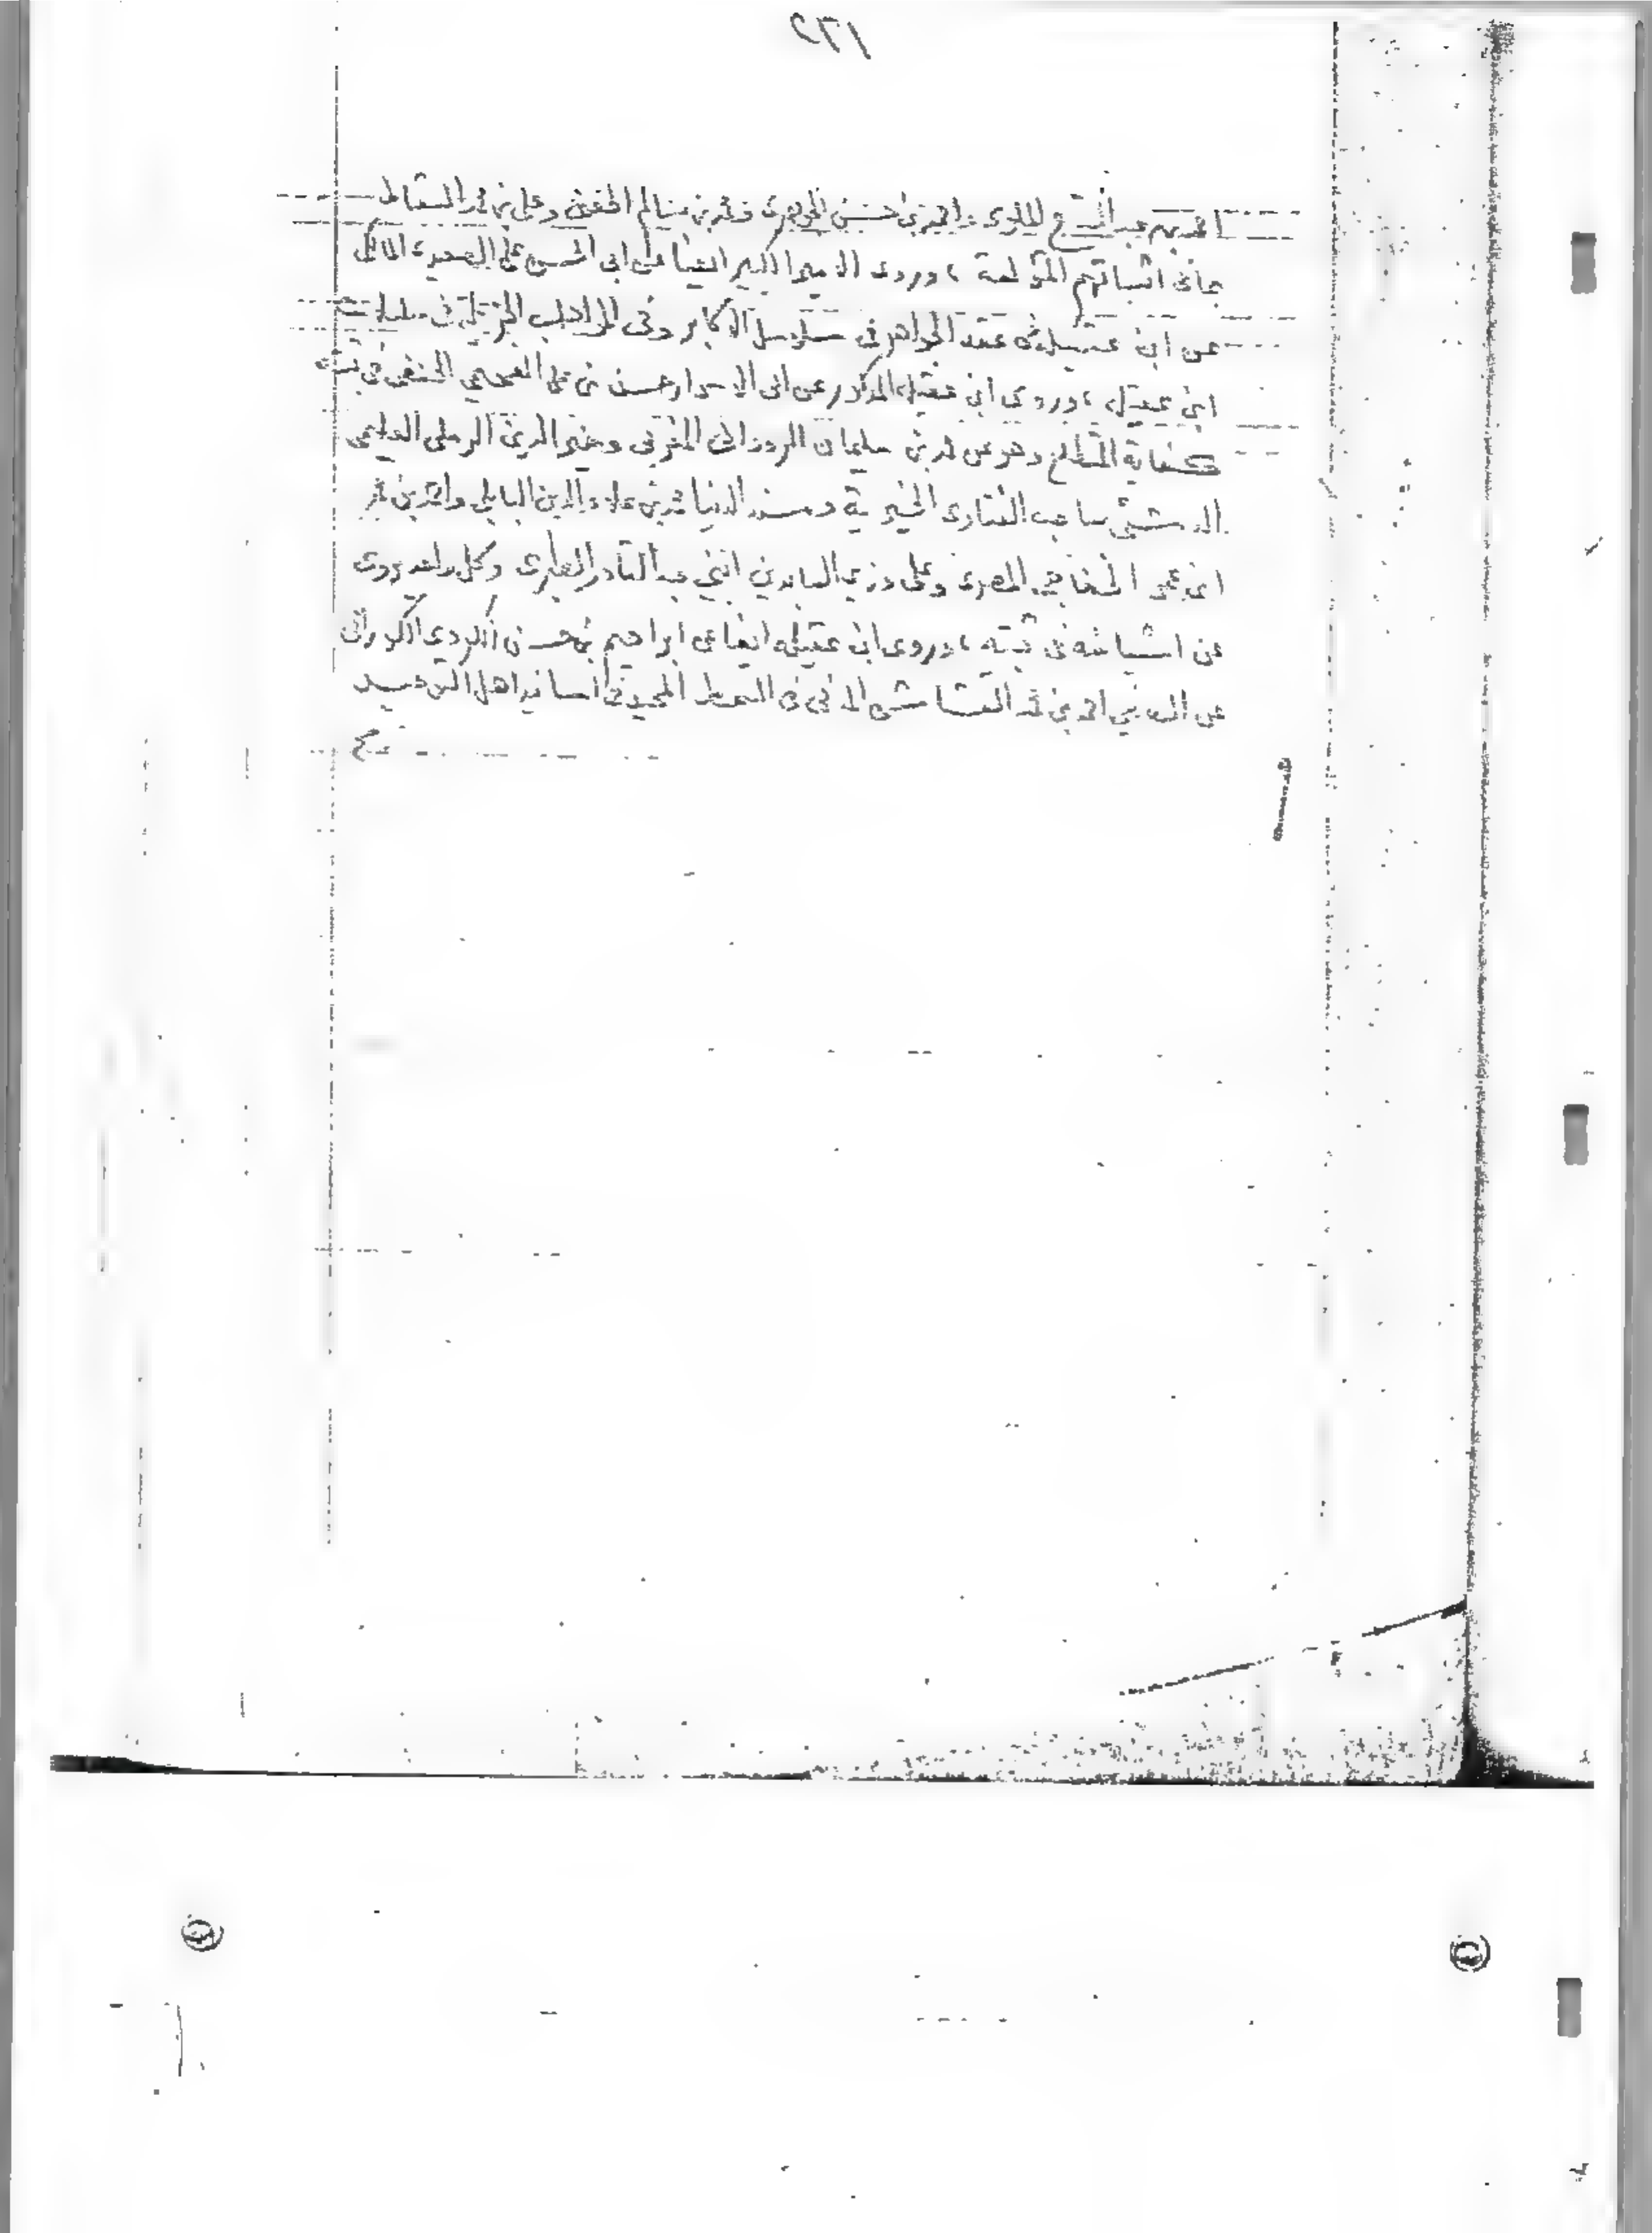 ١٦٢
احمد بن عبد الفتاح الملوى واحمد بن حسن الجوهرى ومحمد بن سالم الحفنى وعلى بن محمد السقاط
بما فى اثباتهم المؤلفة ، وروى الامير الكبير ايضا عن ابى الحسن على الصعيدى المالكى
عن ابن عقيلة فى عقد الجواهر فى سلاسل الاكابر وفى المواهب الجزيلة فى مسلسلات
ابن عقيلة ، وروى ابن عقيلة المذكور عن ابى الاسرار حسن بن على العجيمى الحنفى فى ثبته
كفاية المتطلع وهو عن محمد بن سليمان الرودانى المغربى وخير الدين الرملى العليمى
الدمشقى صاحب الفتاوى الخيرية ومسند الدنيا محمد بن علاء الدين البابلى واحمد بن محمد
ابن عمر الخفاجى المصرى وعلى وزين العابدين ابنى عبد القادر الطبرى وكل واحد يروى
عن اشياخه فى ثبته ، وروى ابن عقيلة ايضا عن ابراهيم بن حسن الكردى الكورانى
عن الصفى احمد بن محمد القشاشى المدنى فى السمط المجيد فى اسانيد اهل التوحيد